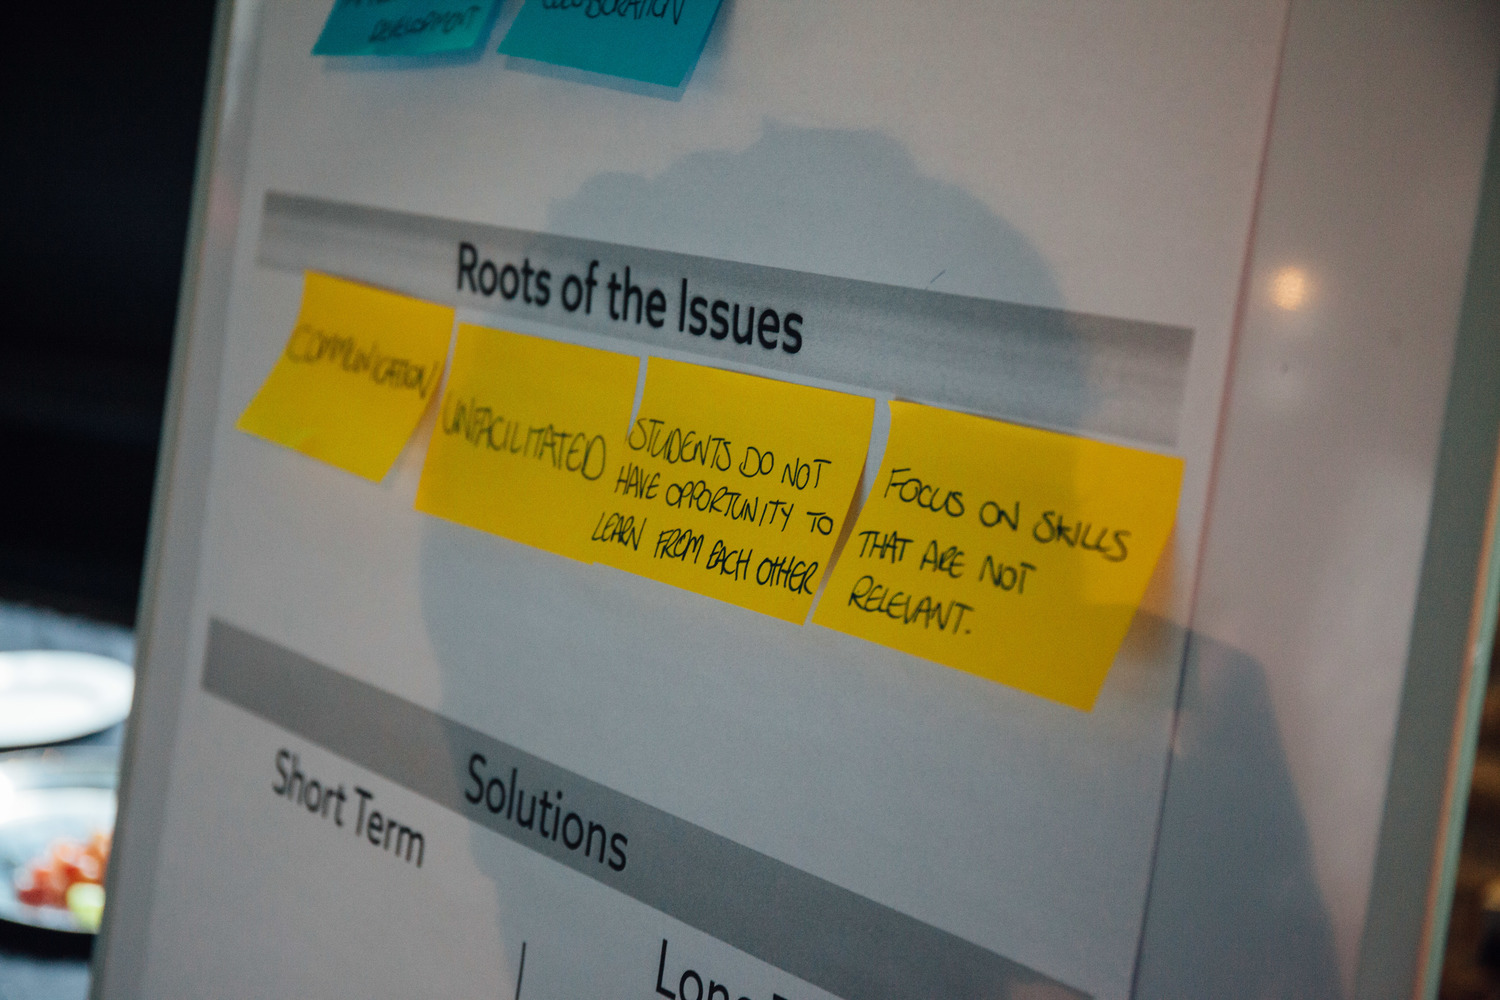 DEVELOPMENT
COLLABORATION
Roots of the Issues
COMMUNICATION
UNFACILITATED
STUDENTS DO NOT
HAVE OPPORTUNITY TO
LEARN FROM EACH OTHER
FOCUS ON SKILLS
THAT ARE NOT
RELEVANT.
Solutions
Short Term
Long